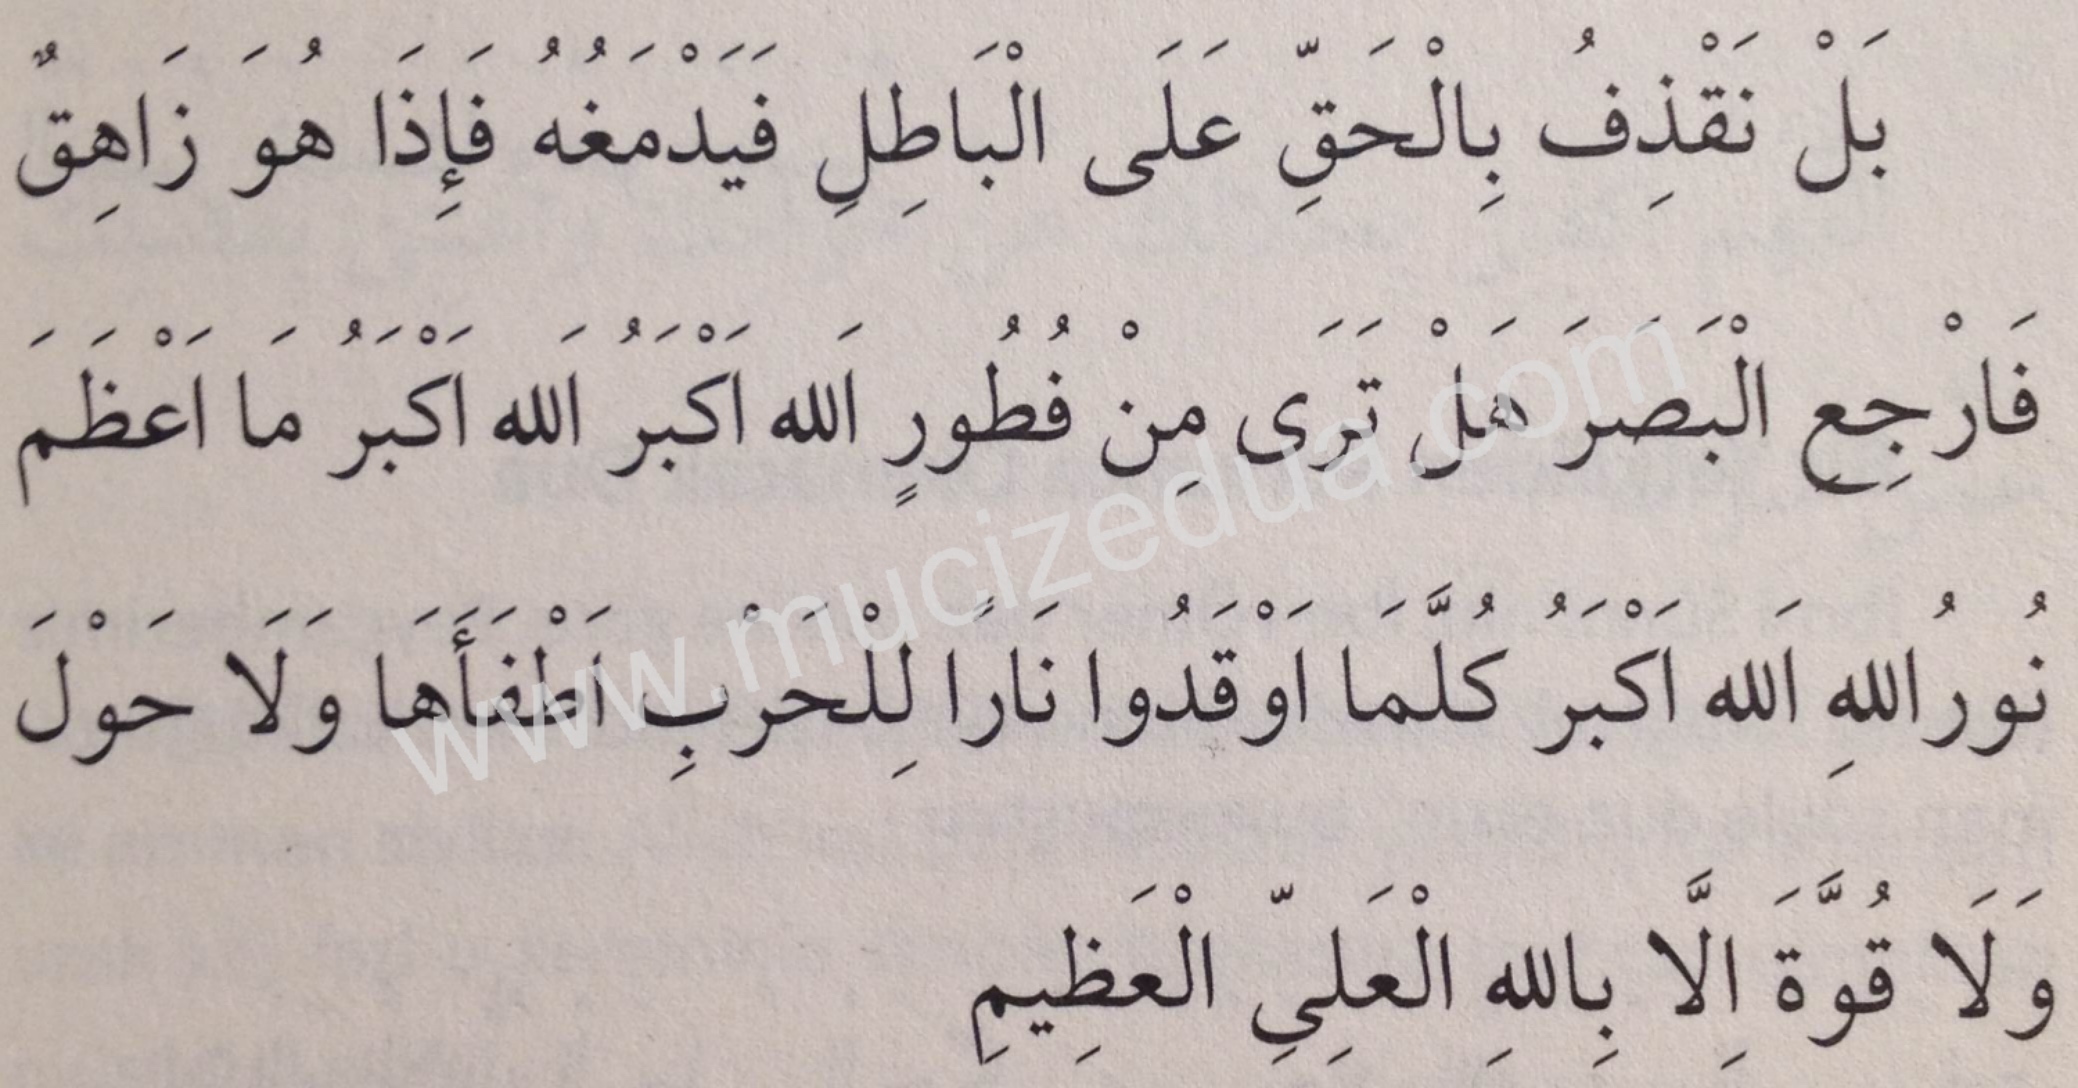 بَلْ نَقْذِفُ بِالْحَقِّ عَلَى الْبَاطِلِ فَيَدْمَغُهُ فَإِذَا هُوَ زَاهِقٌ
فَارْجِعِ الْبَصَرَ هَلْ تَرَى مِنْ فُطُورٍ اَلله اَكْبَرُ اَلله اَكْبَرُ مَا اَعْظَمَ
نُورُ اللهِ اَلله اَكْبَرُ كُلَّمَا اَوْقَدُوا نَارًا لِلْحَرْبِ اَطْفَأَهَا وَلَا حَوْلَ
وَلَا قُوَّةَ اِلَّا بِاللهِ الْعَلِىِّ الْعَظِيمِ
www.mucizedua.com